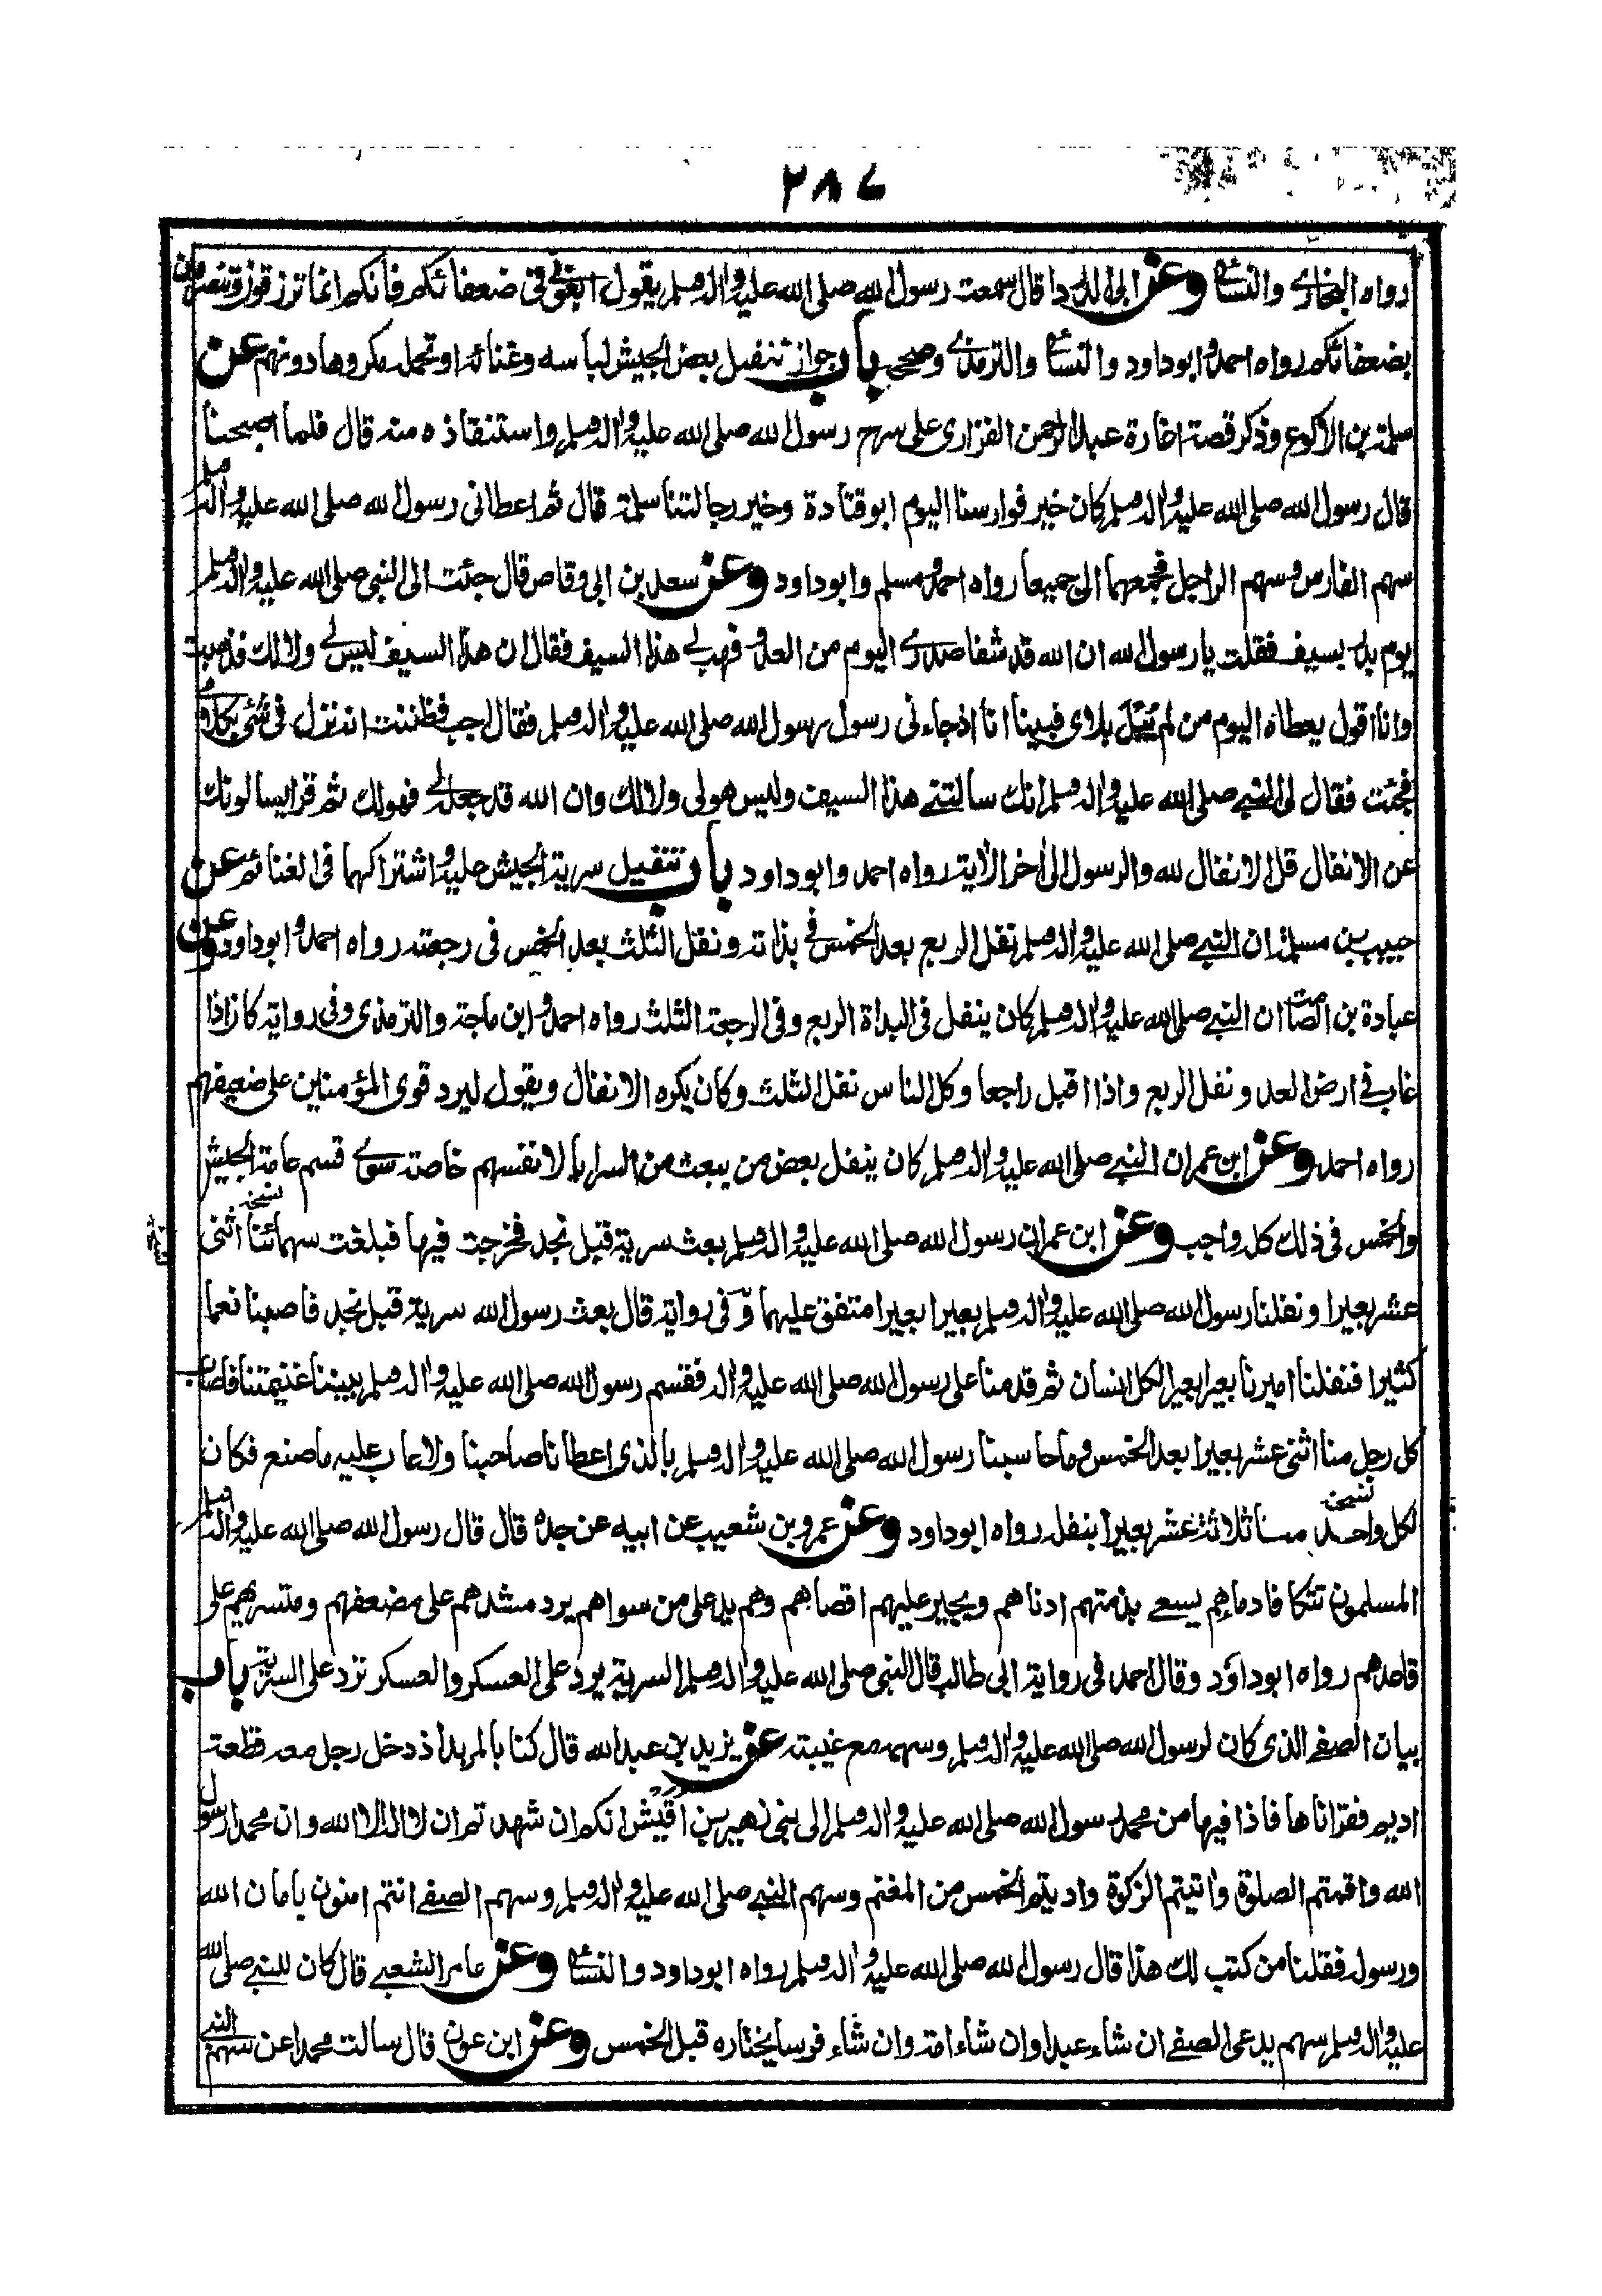 ٢٨٧
رواه البخاري والنسائي وعن ابى الدرداء قال سمعت رسول الله صلى الله عليه واله وسلم يقول ابغونى فى ضعفائكم فانكم انما ترزقون وتنصرون
بضعفائكم رواه احمد وابوداود والنسائي والترمذي وصححه باب جواز تنفيل بعض الجيش لباسه وغنائه او تحمله مكروها دونهم عن
سلمة بن الاكوع وذكر قصة اغارة عبد الرحمن الفزارى على سرح رسول الله صلى الله عليه واله وسلم واستنقاذه منه قال فلما اصبحنا
قال رسول الله صلى الله عليه واله وسلم كان خير فوارسنا اليوم ابوقتادة وخير رجالتنا سلمة قال ثم اعطانى رسول الله صلى الله عليه واله وسلم
سهم الفارس وسهم الراجل فجمعهما الى جميعا رواه احمد ومسلم وابوداود وعن سعد بن ابى وقاص قال جئت الى النبى صلى الله عليه واله وسلم
يوم بدر بسيف فقلت يا رسول الله ان الله قد شفا صدري اليوم من العدو فهب لي هذا السيف فقال ان هذا السيف ليس لي ولا لك فذهبت
وانا اقول يعطاه اليوم من لم يُبْلَ بلاوى فبينا انا اذ جاءنى رسول رسول الله صلى الله عليه واله وسلم فقال اجب فظننت انه نزل فى شئ بكلامى
فجئت فقال لى النبي صلى الله عليه واله وسلم انك سالتني هذا السيف وليس هو لى ولا لك وان الله قد جعله لي فهو لك ثم قرا يسالونك
عن الانفال قل الانفال لله والرسول الى اخر الاية رواه احمد وابوداود باب تنفيل سرية الجيش عليه واشتراكهما فى الغنائم عن
حبيب بن مسلمة ان النبي صلى الله عليه واله وسلم نفل الربع بعد الخمس في بداته ونفل الثلث بعد الخمس فى رجعته رواه احمد وابوداود وعن
عبادة بن الصامت ان النبي صلى الله عليه واله وسلم كان ينفل فى البداة الربع وفى الرجعة الثلث رواه احمد وابن ماجة والترمذى وفى رواية كان اذا
غاب في ارض العدو نفل الربع واذا اقبل راجعا وكل الناس نفل الثلث وكان يكره الانفال ويقول ليرد قوى المؤمنين على ضعيفهم
رواه احمد وعن ابن عمر ان النبي صلى الله عليه واله وسلم كان ينفل بعض من يبعث من السرايا لانفسهم خاصة سوي قسم عامة الجيش
والخمس فى ذلك كله واجب وعن ابن عمر ان رسول الله صلى الله عليه واله وسلم بعث سرية قبل نجد فخرجت فيها فبلغت سهمائنا اثنى
عشر بعيرا ونفلنا رسول الله صلى الله عليه واله وسلم بعيرا بعيرا متفق عليهما وفى رواية قال بعث رسول الله سرية قبل نجد فاصبنا نعما
كثيرا فنفلنا اميرنا بعيرا بعيرا لكل انسان ثم قدمنا على رسول الله صلى الله عليه واله فقسم رسول الله صلى الله عليه واله وسلم بيننا غنيمتنا فاصاب
كل رجل منا اثنى عشر بعيرا بعد الخمس وما حاسبنا رسول الله صلى الله عليه واله وسلم بالذى اعطانا صاحبنا ولا عاب عليه ما صنع فكان
لكل واحد منا ثلاثة عشر بعيرا بنفله رواه ابوداود وعن عمرو بن شعيب عن ابيه عن جده قال قال رسول الله صلى الله عليه واله وسلم
المسلمون تتكافا دماءهم يسعى بذمتهم ادناهم ويجير عليهم اقصاهم وهم يد على من سواهم يرد مشدهم على مضعفهم ومتسريهم على
قاعدهم رواه ابوداود وقال احمد فى رواية ابى طالب قال النبى صلى الله عليه واله وسلم السرية يرد على العسكر والعسكر ترد على السرية باب
بيان الصفي الذى كان لرسول الله صلى الله عليه واله وسلم وسهمه مع غيبته عن يزيد بن عبد الله قال كنا بالمربد اذ دخل رجل معه قطعة
اديم فقراناها فاذا فيها من محمد رسول الله صلى الله عليه واله وسلم الى بنى زهير بن اقيش انكم ان شهدتم ان لا اله الا الله وان محمدا رسول
الله واقمتم الصلوة واتيتم الزكوة واديتم الخمس من المغنم وسهم النبي صلى الله عليه واله وسلم وسهم الصفي انتم امنون بامان الله
ورسوله فقلنا من كتب لك هذا قال رسول الله صلى الله عليه واله وسلم رواه ابوداود والنسائي وعن عامر الشعبي قال كان للنبي صلى الله
عليه واله وسلم سهم يدعى الصفي ان شاء عبدا وان شاء امة وان شاء فرسا يختاره قبل الخمس وعن ابن عون قال سالت محمدا عن سهم النبي